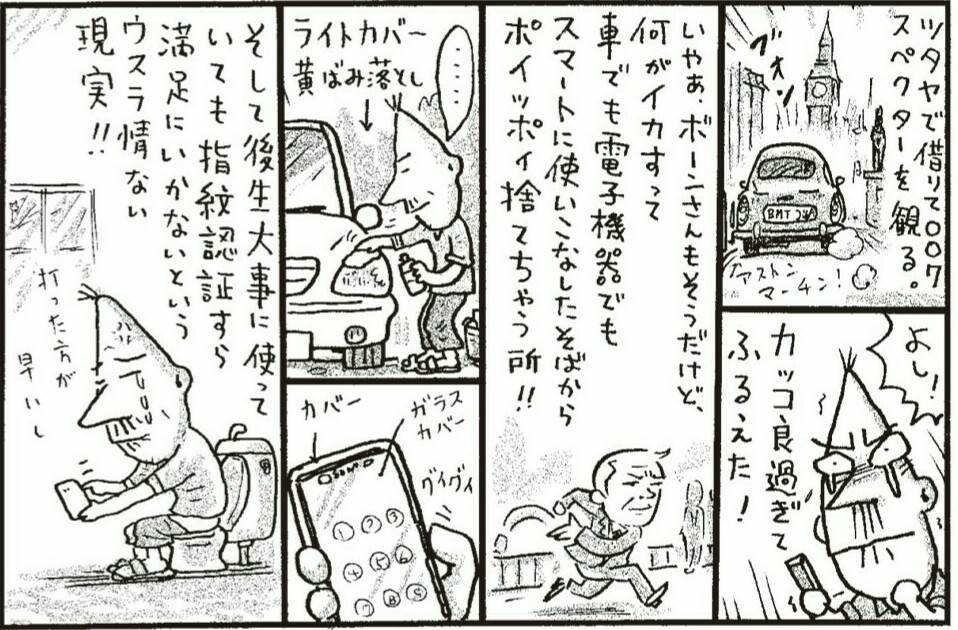 ツタヤで借りて007
スペクターを観る。
ブオン
BMT 24
アストン
マーチン!
よし!
カッコ良過ぎて
ふるえた!
いやぁ、ボーンさんもそうだけど、
何がイカすって
車でも電子機器でも
スマートに使いこなしたそばから
ポイッポイ捨てちゃう所!!
……
ライトカバー
黄ばみ落とし
ガラス
カバー
カバー
グイグイ
1 2 3
4 5 6
7 8
そして後生大事に使って
いても指紋認証すら
満足にいかないという
ウスラ情ない
現実!!
打った方が
早いし